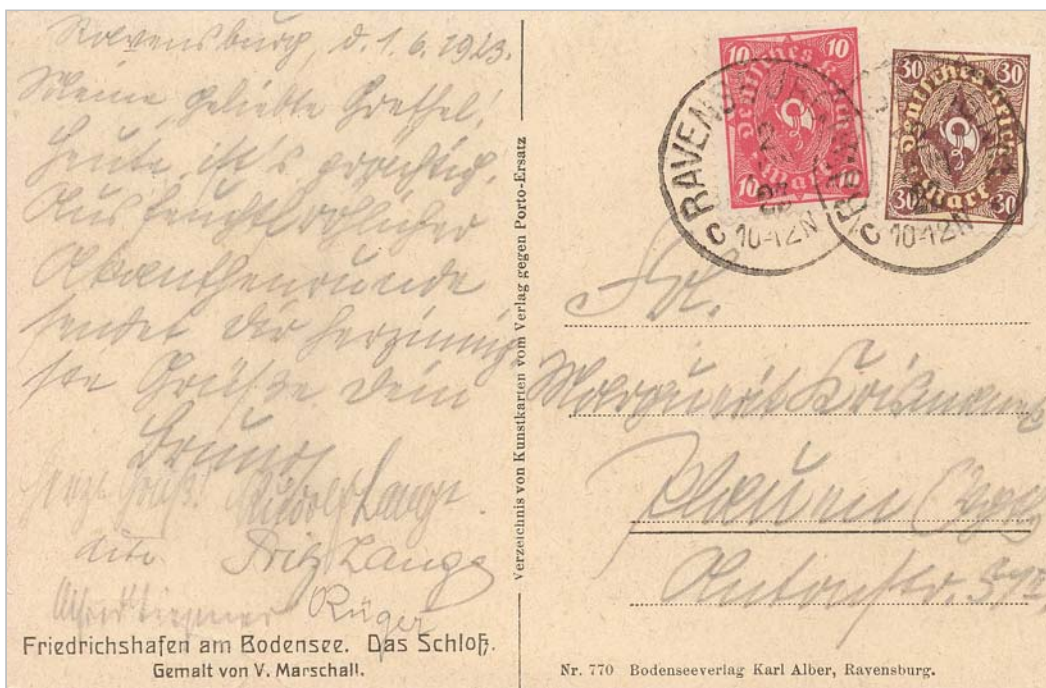 Ravensburg, d. 1. 6. 1923.
Meine geliebte Grethel!
Heute ist's prächtig.
Aus feuchtfröhlicher
sendet dir herzinnig-
ste Grüße dein
Bruno
Herzl. Gruß! Rudolf Lange.
Fritz Lange
Rüger
Friedrichshafen am Bodensee. Das Schloß.
Gemalt von V. Marschall.
Verzeichnis von Kunstkarten vom Verlag gegen Porto-Ersatz
10 10
Deutsches Reich
10 Mark 10
30 30
Deutsches Reich
30 Mark 30
RAVENSBURG
C 10-12N
RAVENSBURG
C 10-12N
Frl.
Plauen
Antonstr.
Nr. 770 Bodenseeverlag Karl Alber, Ravensburg.